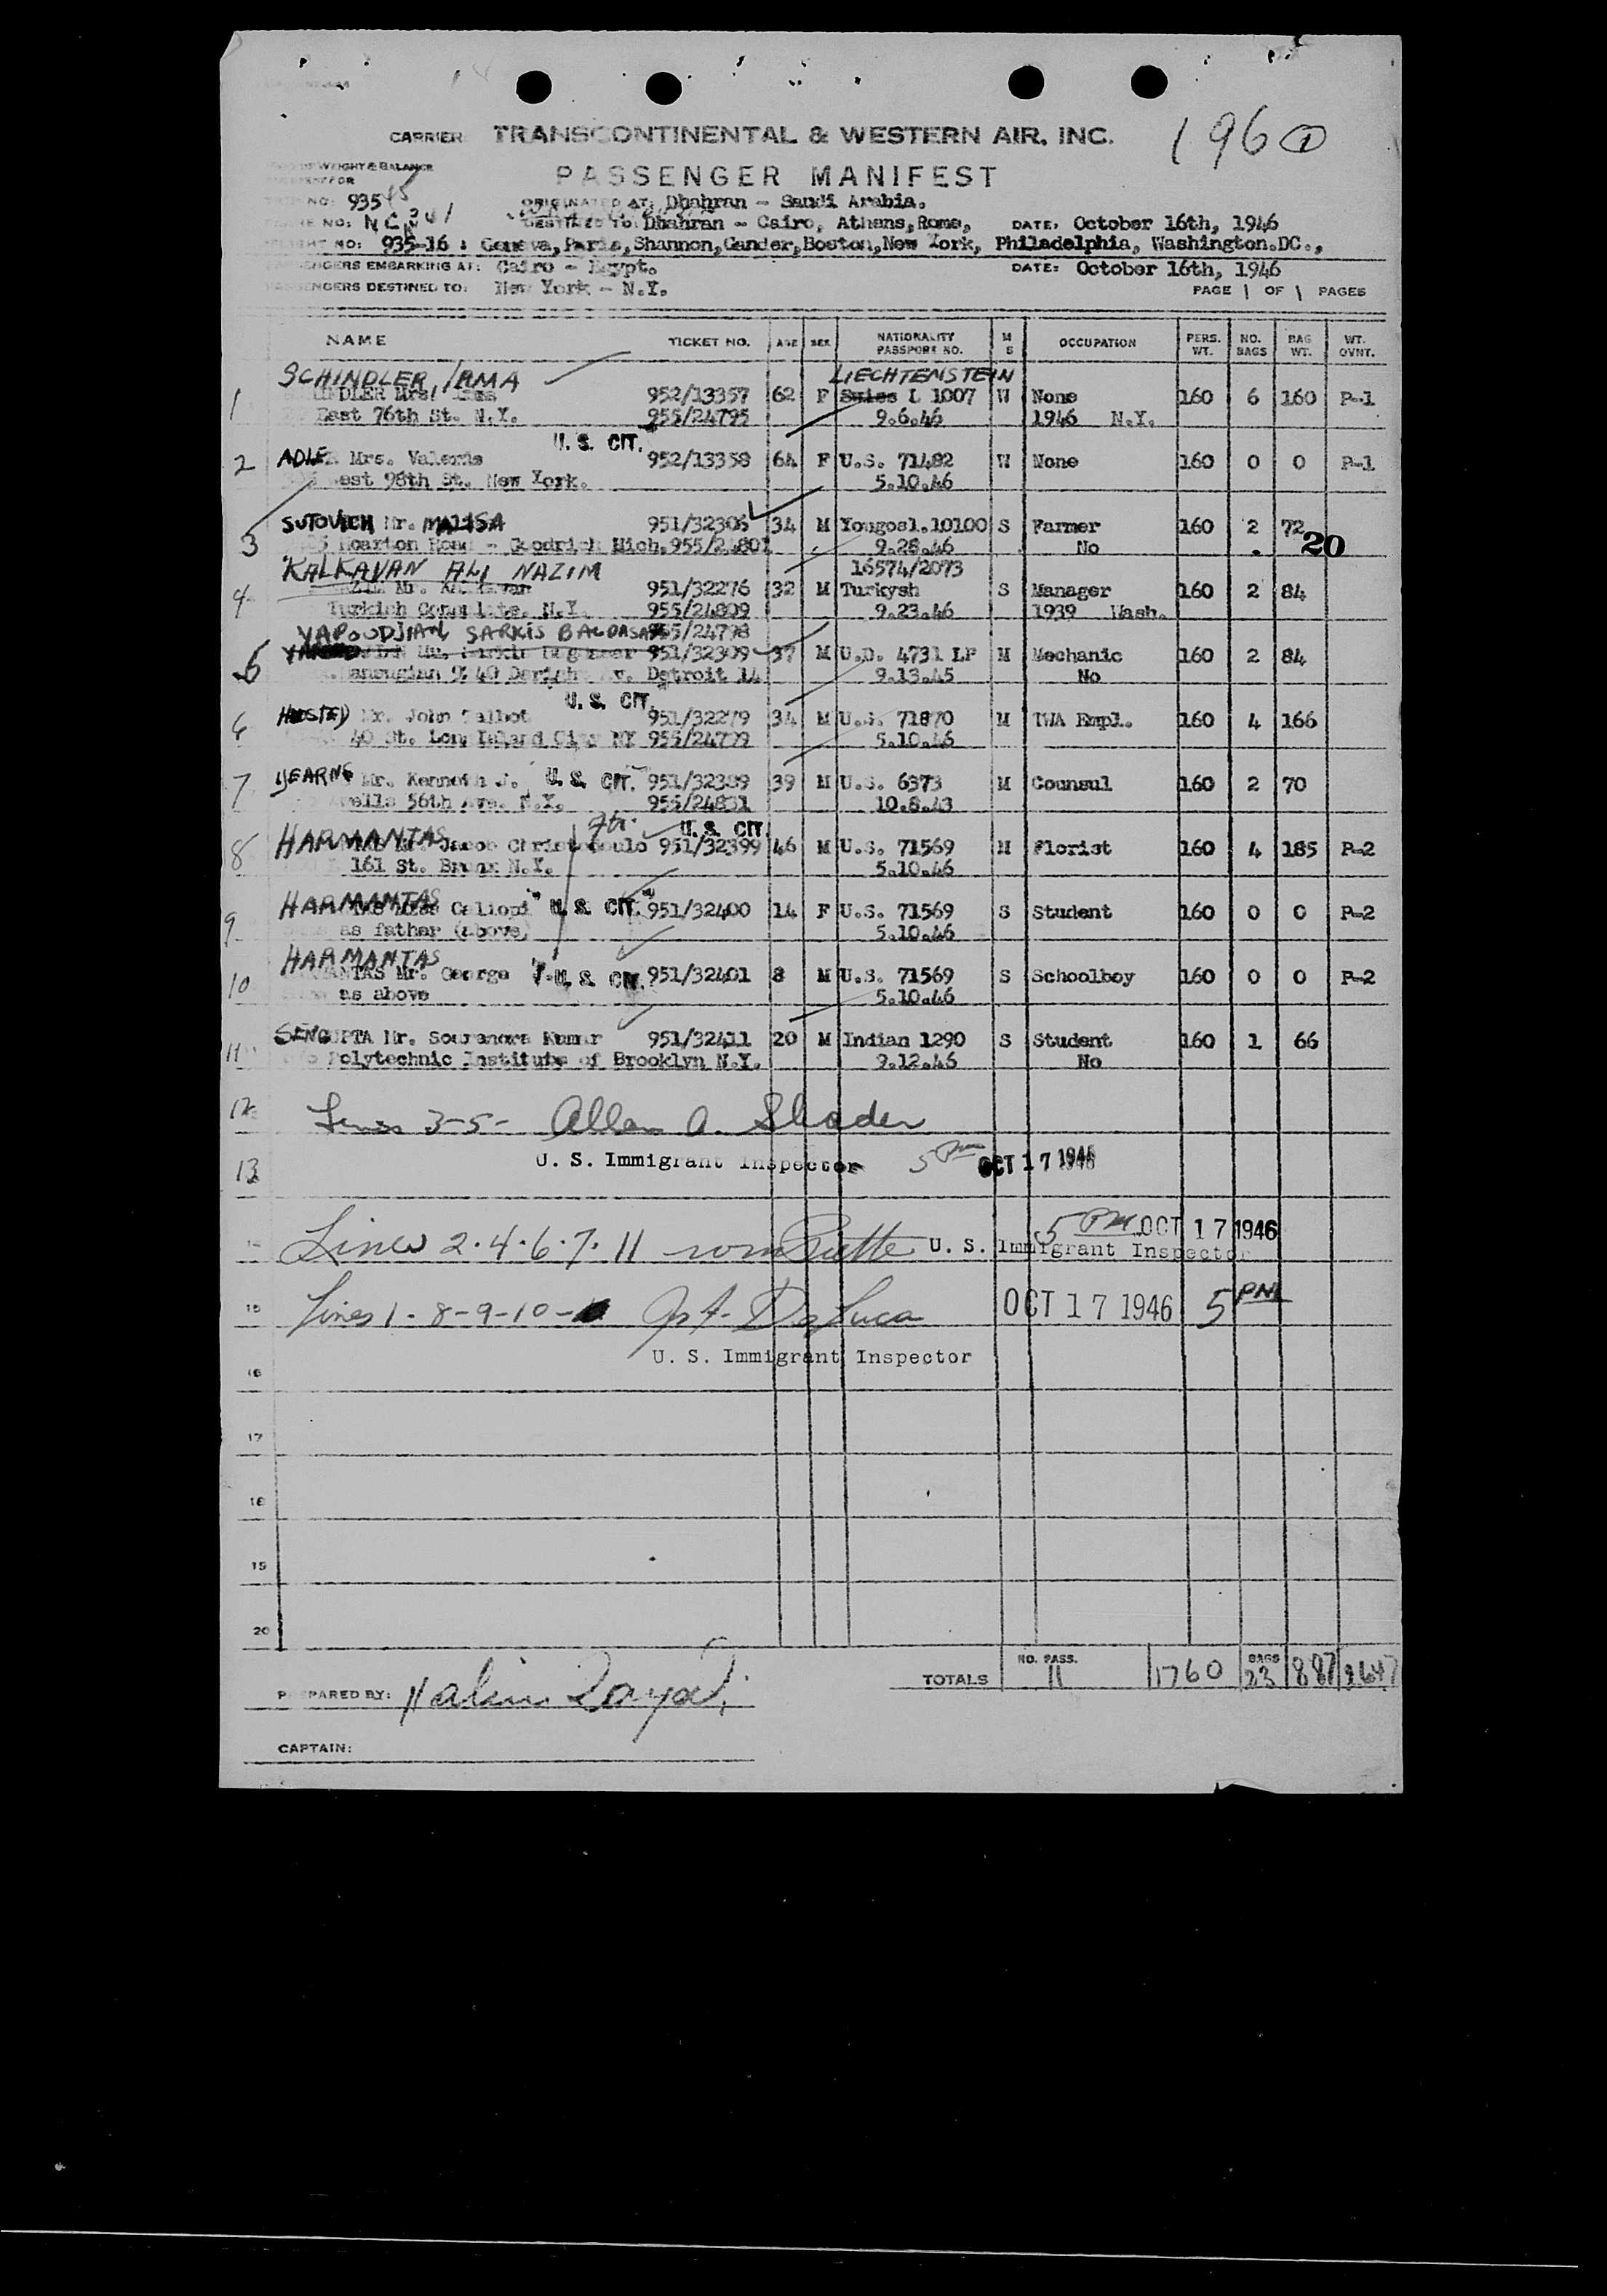 196 1
CARRIER TRANSCONTINENTAL & WESTERN AIR, INC.
WEIGHT & BALANCE
FOR
PASSENGER MANIFEST
NO: 935
ORIGINATED AT: Dhahran - Saudi Arabia.
NO: NC
DESTINED TO: Dhahran - Cairo, Athens, Rome, DATE: October 16th, 1946
NO: 935-16 : Geneva, Paris, Shannon, Gander, Boston, New York, Philadelphia, Washington.DC.,
PASSENGERS EMBARKING AT: Cairo - Egypt. DATE: October 16th, 1946
PASSENGERS DESTINED TO: New York - N.Y. PAGE 1 OF 1 PAGES
NAME TICKET NO. AGE SEX NATIONALITY PASSPORT NO. M S OCCUPATION PERS. WT. NO. BAGS BAG WT. WT. OVNT.
SCHINDLER, IRMA LIECHTENSTEIN
1 952/13357 62 F Suiss L 1007 W None 160 6 160 P-1
East 76th St. N.Y. 955/24795 9.6.46 1946 N.Y.
U. S. CIT.
2 ADLER Mrs. Valerie 952/13358 64 F U.S. 71482 W None 160 0 0 P-1
West 98th St. New York. 5.10.46
3 SUTOVICH Mr. MALISA 951/32305 34 M Yougosl. 10100 S Farmer 160 2 72 20
Goodrich Mich. 955/24801 9.28.46 No
KALKAVAN ALI NAZIM 16574/2073
4 951/32276 32 M Turkysh S Manager 160 2 84
Turkish Consulate. N.Y. 955/24809 9.23.46 1939 Wash.
YAPOUDJIAN SARKIS BAGDASAR 955/24798
5 951/32309 37 M U.D. 4731 LP M Mechanic 160 2 84
% 40 Detroit 14 9.13.45 No
U. S. CIT.
6 HUSTED Mr. John Talbot 951/32279 34 M U.S. 71870 M TWA Empl. 160 4 166
40 St. Long Island City NY 955/24799 5.10.46
7 YEARNS Mr. Kenneth J. U. S. CIT. 951/32389 39 M U.S. 6373 M Counsul 160 2 70
56th Ave. N.Y. 955/24831 10.8.43
U. S. CIT.
8 HARMANTAS Jacob Christopoulo 951/32399 46 M U.S. 71569 M Florist 160 4 185 P-2
161 St. Bronx N.Y. 5.10.46
9 HARMANTAS Miss Calliopi U. S. CIT. 951/32400 14 F U.S. 71569 S Student 160 0 0 P-2
as father (above) 5.10.46
HARMANTAS
10 Mr. George U. S. CIT. 951/32401 8 M U.S. 71569 S Schoolboy 160 0 0 P-2
as above 5.10.46
11 SENGUPTA Mr. Sourendra Kumar 951/32411 20 M Indian 1290 S Student 160 1 66
c/o Polytechnic Institute of Brooklyn N.Y. 9.12.46 No
12 Lines 3-5- Allan A. Shader
13 U. S. Immigrant Inspector 5 PM OCT 17 1946
14 Lines 2.4.6.7.11 U. S. Immigrant Inspector 5 PM OCT 17 1946
15 Lines 1-8-9-10- Jos A. DeLuca OCT 17 1946 5 PM
U. S. Immigrant Inspector
16
17
18
19
20
TOTALS NO. PASS. 11 1760 BAGS 23 887 2647
PREPARED BY:
CAPTAIN: